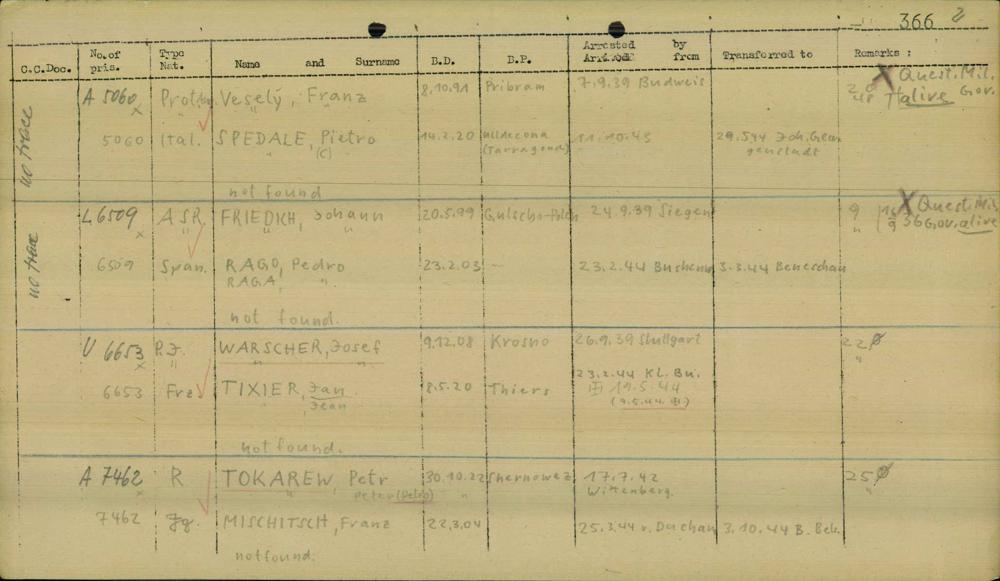 366 2
C.C.Doc. No.of pris. Type Nat. Name and Surname B.D. B.P. Arrested Arrived by from Transferred to Remarks :
A 5060 Prot. Veselý, Franz 8.10.91 Pribram 7.9.39 Budweis X Quest. Mil. Gov. alive
x
no trace
5060 Ital. SPEDALE, Pietro 14.2.20 Ulldecona (Tarragona) 11.10.43
" (C)
not found
L 6509 ASR FRIEDICH, Johann 20.5.99 24.9.39 Siegen 9 X Quest. Mil. Gov. alive
x " " " "
no trace
6509 Span. RAGO, Pedro 23.2.03 - 23.2.44 3.3.44 Beneschau
RAGA, "
not found.
U 6653 R.J. WARSCHER, Josef 9.12.08 Krosno 26.9.39 Stuttgart 22
x " " " "
6653 Frz. TIXIER, Jan 8.5.20 Thiers 23.2.44 Kl. Bu.
Jean 19.5.44
(9.5.44.)
not found.
A 7462 R TOKAREW, Petr 30.10.22 17.7.42 25
x " Peter (Petro) " Wittenberg. "
7462 Jg. MISCHITSCH, Franz 22.3.04 25.3.44 v. Dachau 3.10.44 B. Bek.
not found.